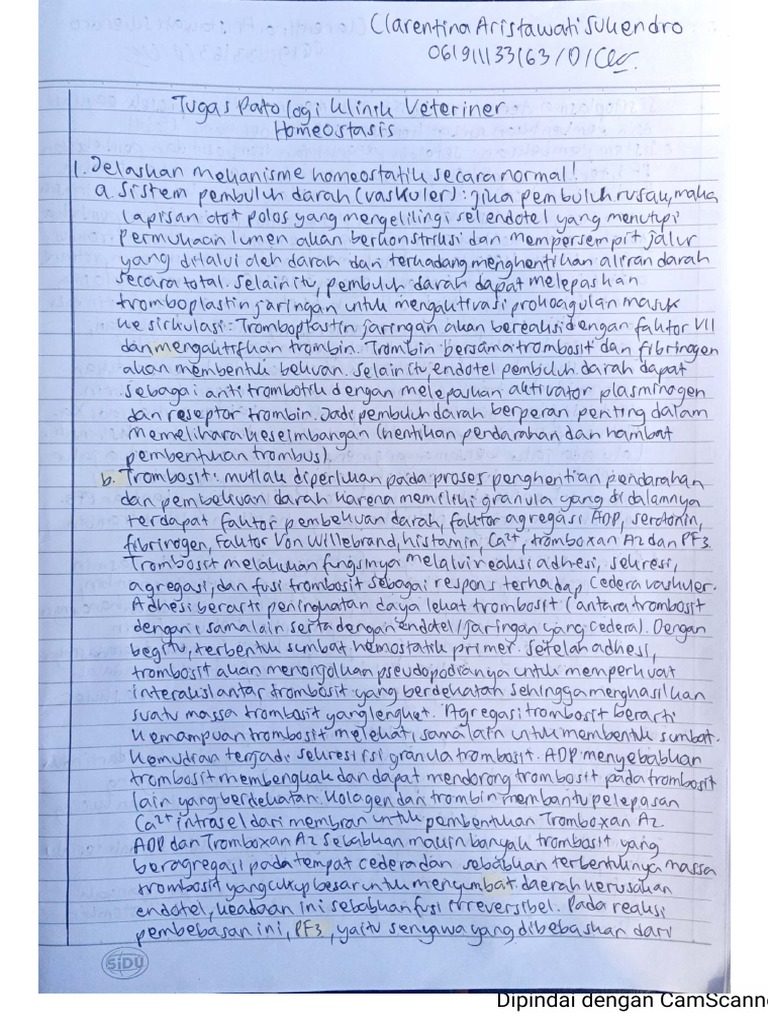 Clarentina Aristawati Sukendro
061911133163/D/
Tugas Patologi Klinik Veteriner
Homeostasis
1. Jelaskan mekanisme homeostatik secara normal!
a. Sistem pembuluh darah (vaskuler): jika pembuluh rusak, maka
lapisan otot polos yang mengelilingi sel endotel yang menutupi
permukaan lumen akan berkonstriksi dan mempersempit jalur
yang dilalui oleh darah dan terkadang menghentikan aliran darah
secara total. Selain itu, pembuluh darah dapat melepaskan
tromboplastin jaringan untuk mengaktivasi prokoagulan masuk
ke sirkulasi. Tromboplastin jaringan akan bereaksi dengan faktor VII
dan mengaktifkan trombin. Trombin bersama trombosit dan fibrinogen
akan membentuk bekuan. Selain itu, endotel pembuluh darah dapat
sebagai antitrombotik dengan melepaskan aktivator plasminogen
dan reseptor trombin. Jadi pembuluh darah berperan penting dalam
memelihara keseimbangan (hentikan pendarahan dan hambat
pembentukan trombus).
b. Trombosit: mutlak diperlukan pada proses penghentian pendarahan
dan pembekuan darah karena memiliki granula yang di dalamnya
terdapat faktor pembekuan darah, faktor agregasi ADP, serotonin,
fibrinogen, Faktor Von Willebrand, histamin, Ca2+, tromboxan A2 dan PF3.
Trombosit melakukan fungsinya melalui reaksi adhesi, sekresi,
agregasi, dan fusi trombosit sebagai respons terhadap cedera vaskuler.
Adhesi berarti peningkatan daya lekat trombosit (antara trombosit
dengan samalain serta dengan endotel/jaringan yang cedera). Dengan
begitu, terbentuk sumbat hemostatik primer. Setelah adhesi,
trombosit akan menonjolkan pseudopodianya untuk memperkuat
interaksi antar trombosit yang berdekatan sehingga menghasilkan
suatu massa trombosit yang lengket. Agregasi trombosit berarti
kemampuan trombosit melekat, samalain untuk membentuk sumbat.
Kemudian terjadi sekresi isi granula trombosit. ADP menyebabkan
trombosit membengkak dan dapat mendorong trombosit pada trombosit
lain yang berdekatan. Kolagen dan trombin membantu pelepasan
Ca2+ intrasel dari membran untuk pembentukan Tromboxan A2
ADP dan Tromboxan A2 sebabkan makin banyak trombosit yang
beragregasi pada tempat cedera dan sebabkan terbentuknya massa
trombosit yang cukup besar untuk menyumbat daerah kerusakan
endotel, keadaan ini sebabkan fusi irreversibel. Pada reaksi
pembebasan ini, PF3, yaitu senyawa yang dibebaskan dari
SiDU
Dipindai dengan CamScann